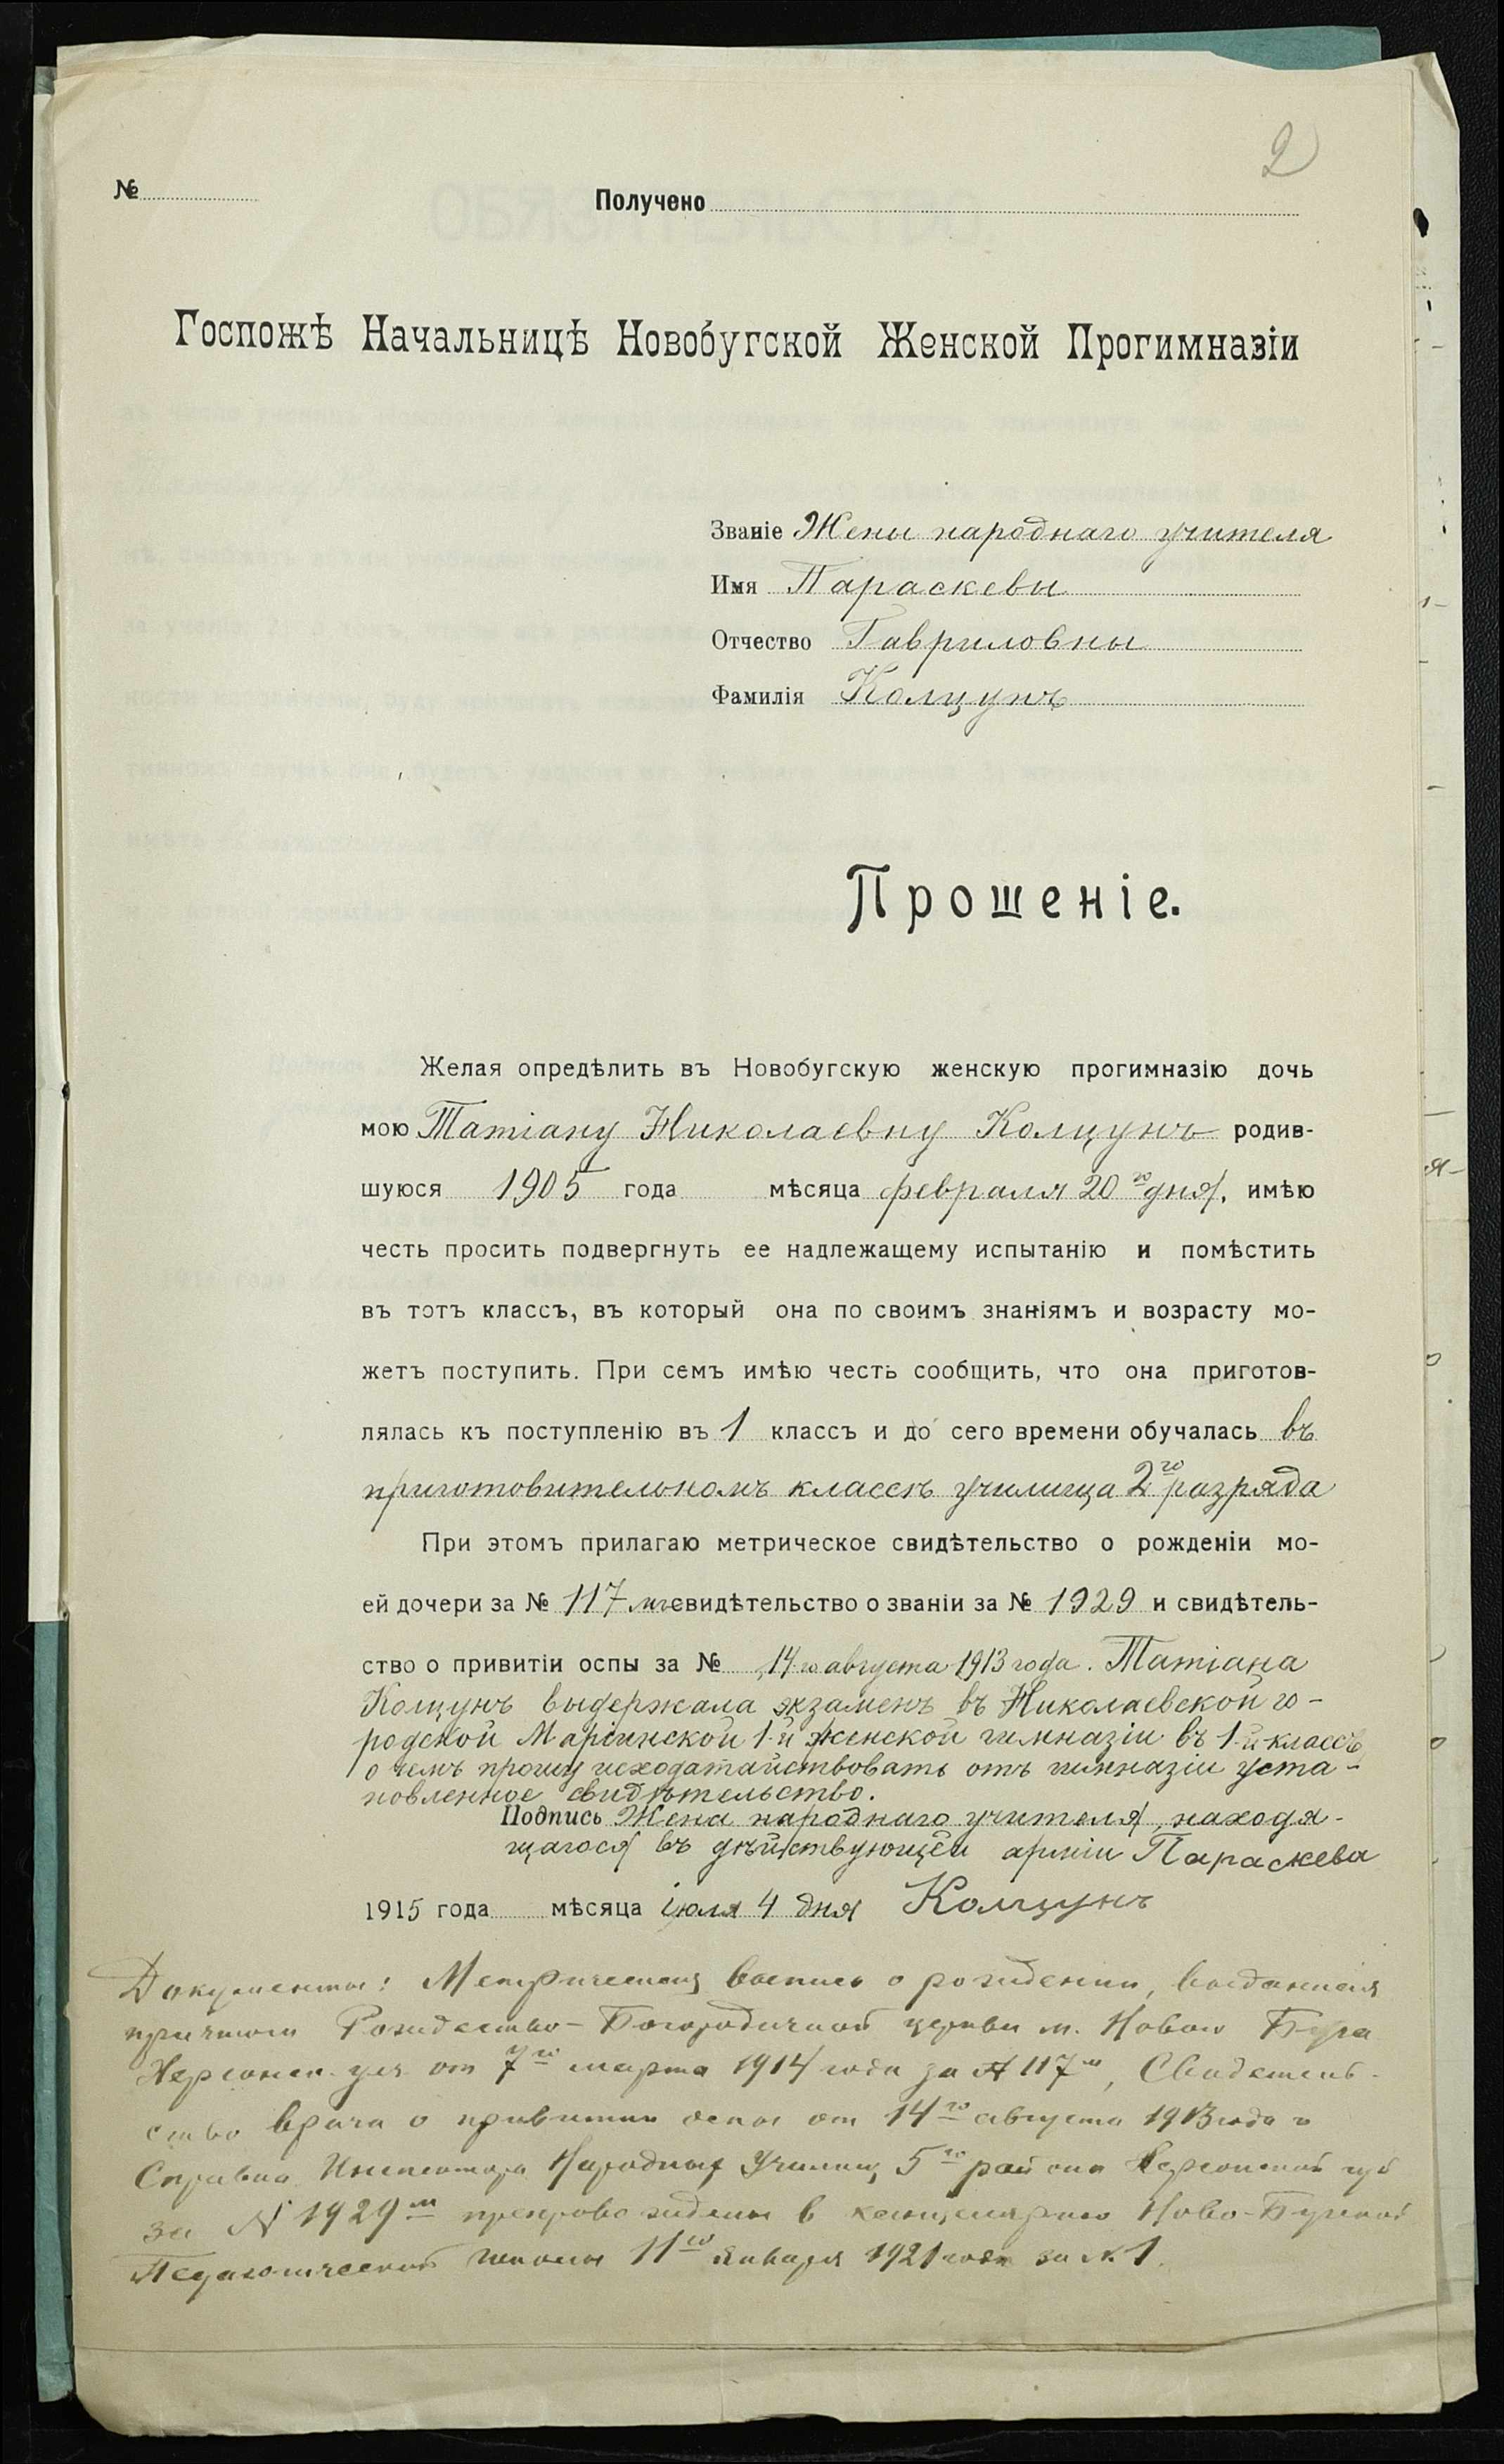 2
№ Получено
Госпожѣ Начальницѣ Новобугской Женской Прогимназіи
Званіе Жены народнаго учителя
Имя Параскевы
Отчество Гавриловны
Фамилія Колцунъ
Прошеніе.
Желая опредѣлить въ Новобугскую женскую прогимназію дочь
мою Татіану Николаевну Колцунъ родив-
шуюся 1905 года мѣсяца февраля 20го дня, имѣю
честь просить подвергнуть ее надлежащему испытанію и помѣстить
въ тотъ классъ, въ который она по своимъ знаніямъ и возрасту мо-
жетъ поступить. При семъ имѣю честь сообщить, что она приготов-
лялась къ поступленію въ 1 классъ и до сего времени обучалась въ
приготовительномъ классѣ училища 2го разряда
При этомъ прилагаю метрическое свидѣтельство о рожденіи мо-
ей дочери за № 117 мъ свидѣтельство о званіи за № 1929 и свидѣтель-
ство о привитіи оспы за № 14го августа 1913 года. Татіана
Колцунъ выдержала экзаменъ въ Николаевской го-
родской Маріинской 1-й женской гимназіи въ 1-й классъ,
о чемъ прошу исходатайствовать отъ гимназіи уста-
новленное свидѣтельство.
Подпись Жена народнаго учителя, находя-
щагося въ дѣйствующей арміи Параскева
1915 года мѣсяца іюля 4 дня Колцунъ
Документы: Метрическая выпись о рождении, выданная
причтом Рождество-Богородичной церкви м. Нового Буга
Херсонск. уез. от 7го марта 1914 года за № 117м, Свидетель-
ство врача о привитии оспы от 14го августа 1913 года и
Справка Инспектора Народных Училищ 5го района Херсонской губ
за № 1929м препровождены в канцелярию Ново-Бугской
Педагогической школы 11го января 1921 года за № 1.